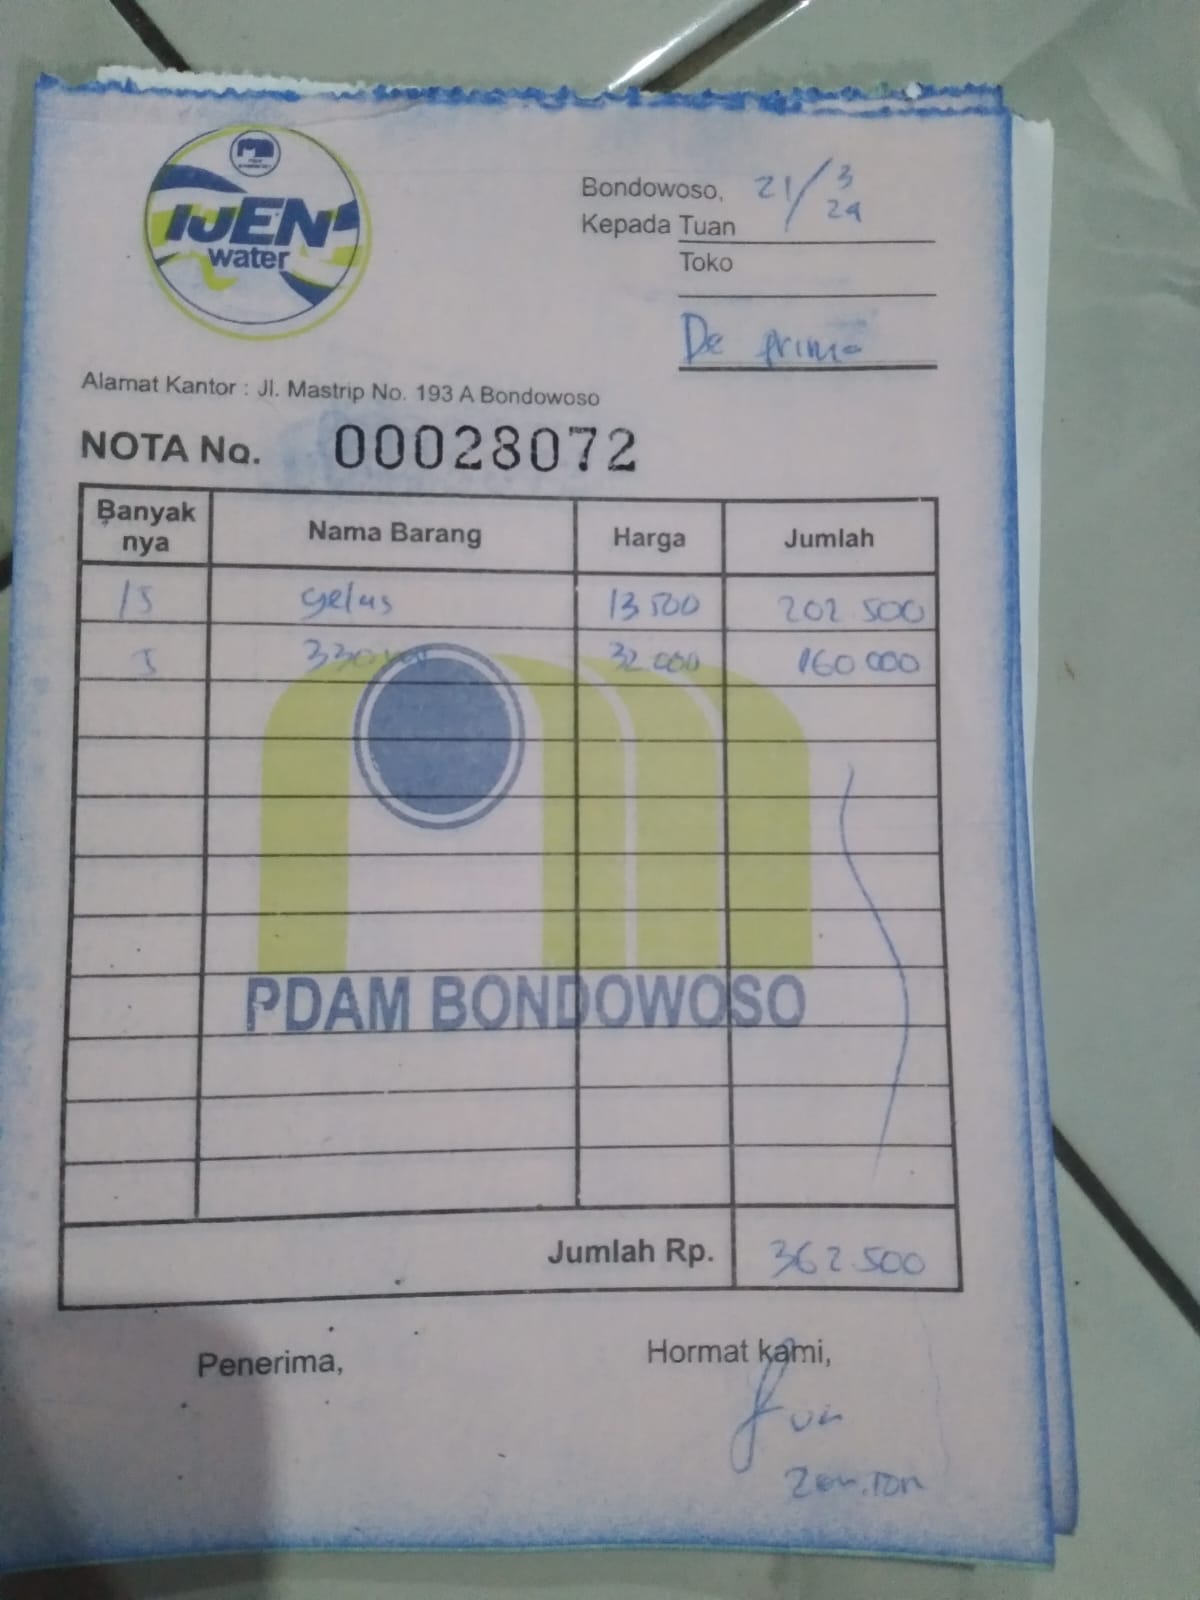 IJEN
water
Bondowoso, 21/3 24
Kepada Tuan
Toko
De prima
Alamat Kantor : Jl. Mastrip No. 193 A Bondowoso
NOTA No. 00028072
Banyak nya Nama Barang Harga Jumlah
15 gelas 13 500 202.500
5 330 32.000 160 000
PDAM BONDOWOSO
Jumlah Rp. 362.500
Penerima, Hormat kami,